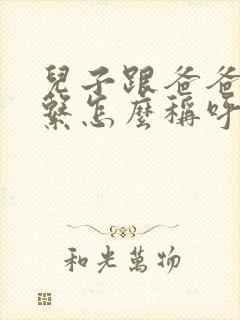 兒子跟爸爸
繫怎麼稱呼
和光萬物